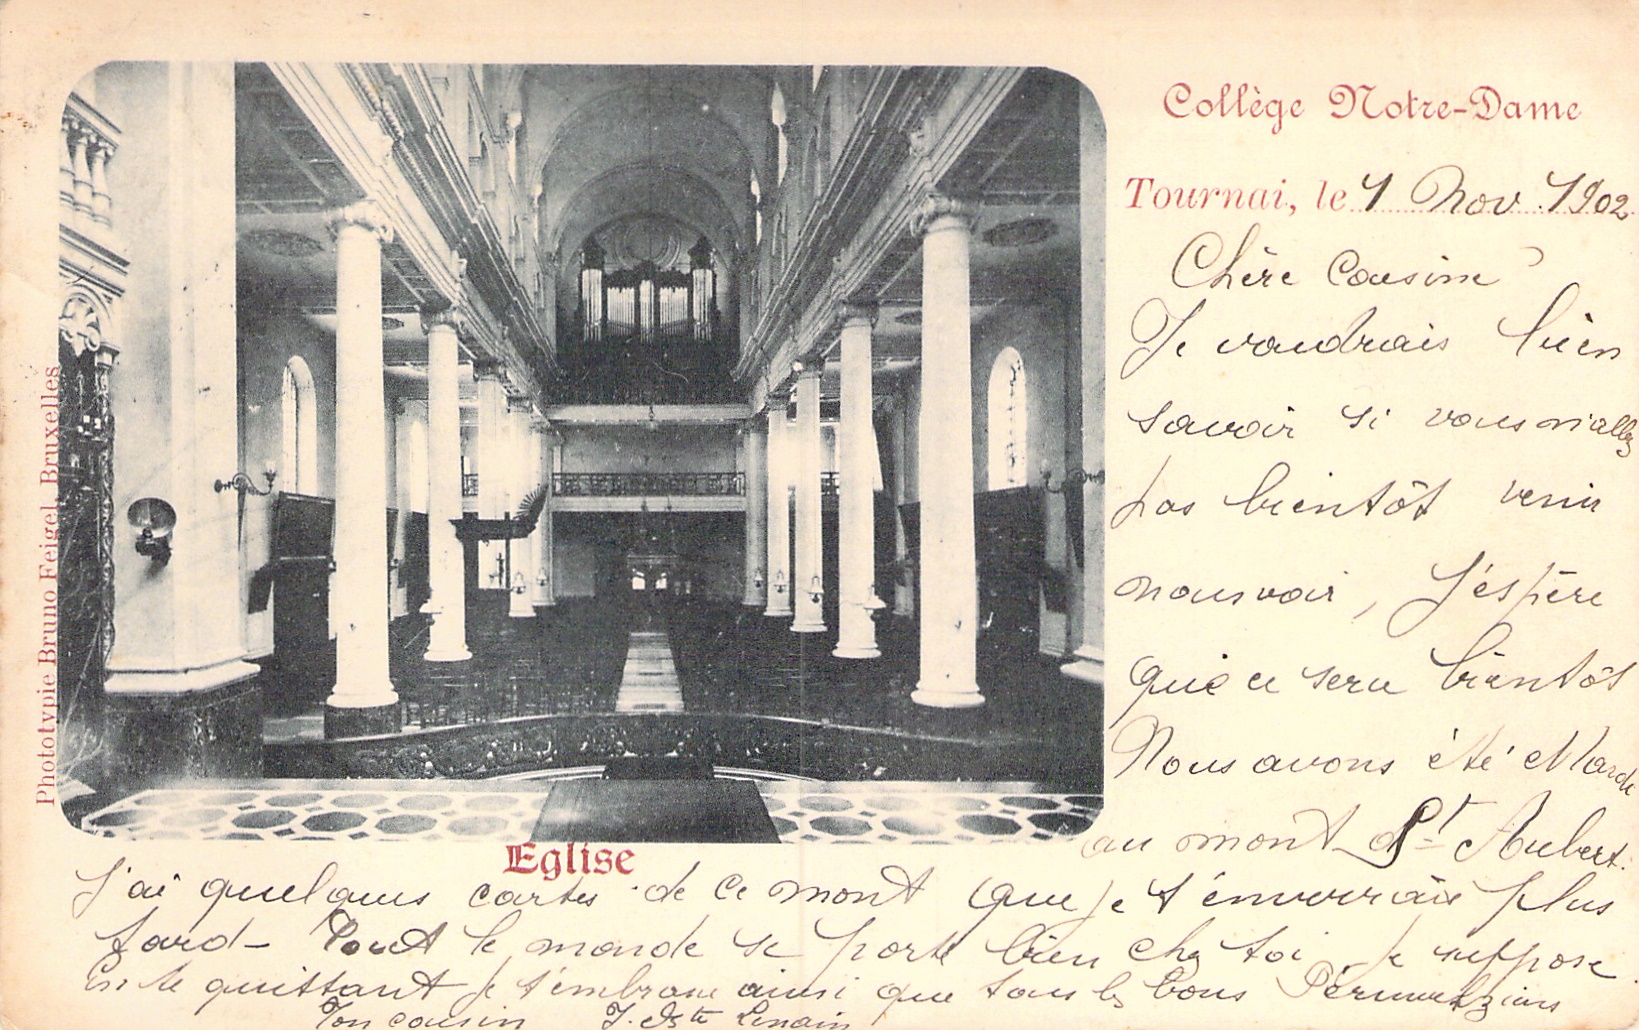 Collège Notre-Dame
Tournai, le 1 Nov 1902
Chère Cousine
Je voudrais bien
savoir si vous n'allez
pas bientôt venir
nous voir, J'éspère
que ce sera bientôt
Nous avons été Mardi
au mont St Aubert.
J'ai quelques cartes de ce mont que je t'enverrais plus
tard - Tout le monde se porte bien chez toi, je suppose.
En te quittant je t'embrasse ainsi que tous les bons Péruwelziens
Ton cousin J. Bte Lenain
Eglise
Phototypie Bruno Feigel, Bruxelles